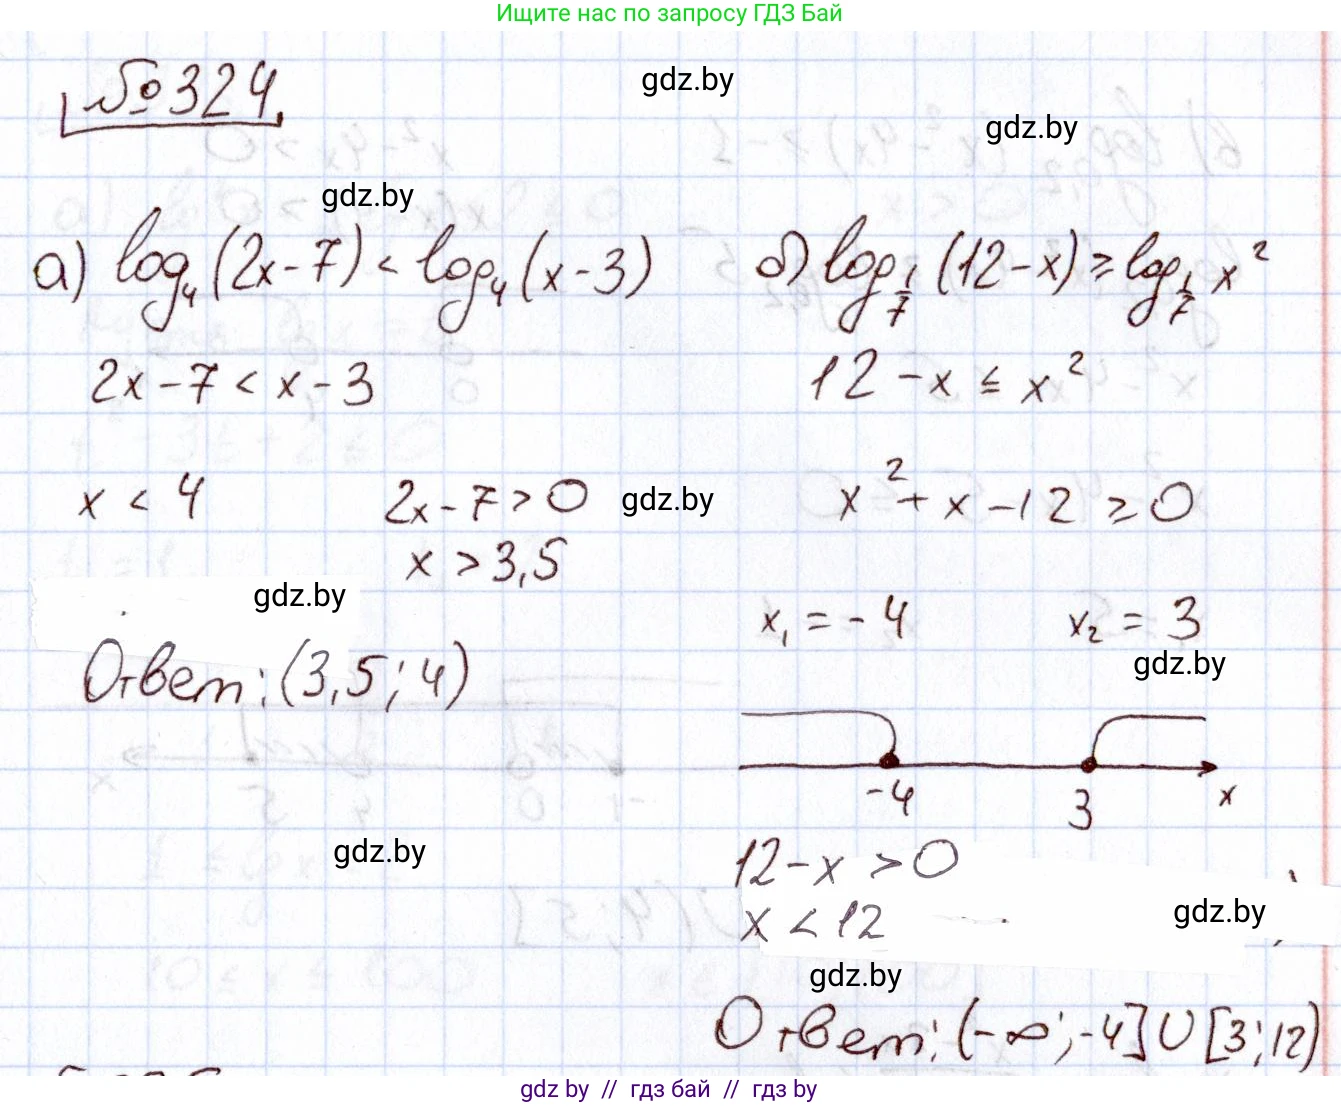 Ищите нас по запросу ГДЗ Бай
№324
gdz.by
gdz.by
gdz.by
а) log₄(2x-7) < log₄(x-3)
2x-7 < x-3
x < 4
2x-7 > 0
x > 3,5
gdz.by
gdz.by
Ответ: (3,5; 4)
gdz.by
б) log_{1/7}(12-x) ≥ log_{1/7} x²
12-x ≤ x²
x²+x-12 ≥ 0
x₁ = -4 x₂ = 3
gdz.by
-4 3 x
12-x > 0
x < 12
gdz.by
gdz.by
Ответ: (-∞; -4] ∪ [3; 12)
gdz by // гдз бай // gdz by